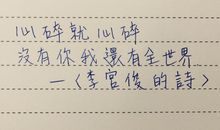 心碎就心碎
沒有你我還有全世界
—〈李宮俊的詩〉